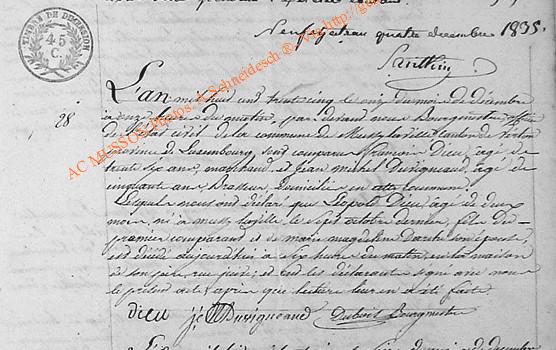 TIMBRE DE DIMENSION
45
C
Neufchateau quatre décembre 1835.
Santkin
AC MUSSON Photos
Schneidesch ®
http://g
28
L'an mil huit cent trente cinq le onze du mois de décembre
à onze heures du matin, par devant nous Bourgmestre officier
de l'état civil de la commune de Mussy la ville canton de Virton
province de Luxembourg sont comparu françois Dieu, agé de
trente six ans, marchand, et jean michel Duvigneaud, agé de
cinquante ans Brasseur, domiciliés en cette commune
lesquels nous ont déclaré que Léopold Dieu, agé de deux
mois, né à mussy laville le sept octobre dernier, fils du
premier comparant et de marie magdeleine son épouse,
est décédé aujourd'hui à six heures du matin, en la maison
de son père, et ont les déclarants signé avec nous
le présent acte après que lecture leur en a été faite.
dieu j. Duvigneaud Bourgmestre